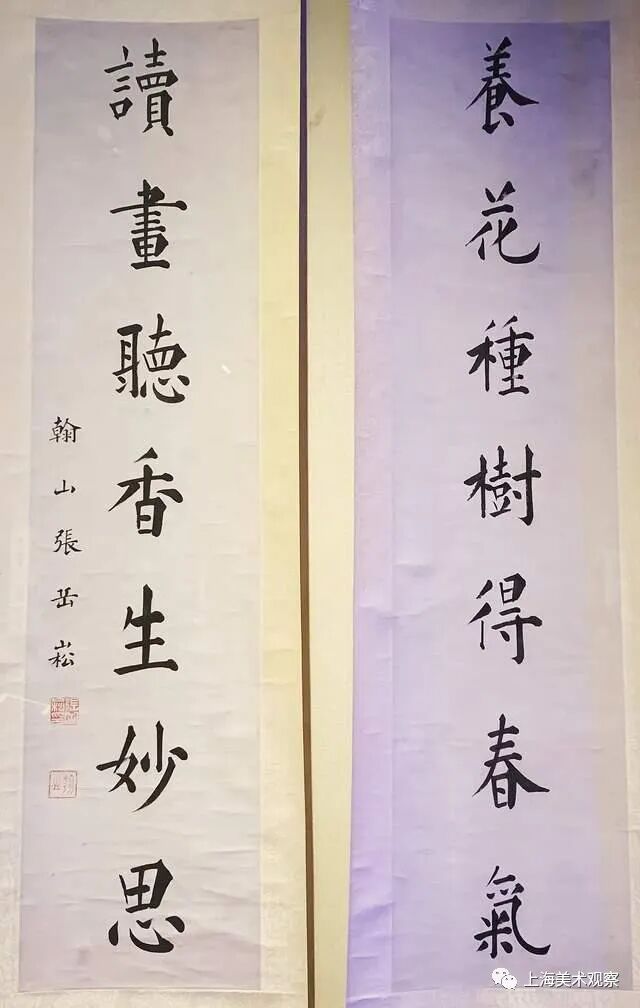 養花種樹得春氣
讀畫聽香生妙思
翰山張岳崧
上海美术观察